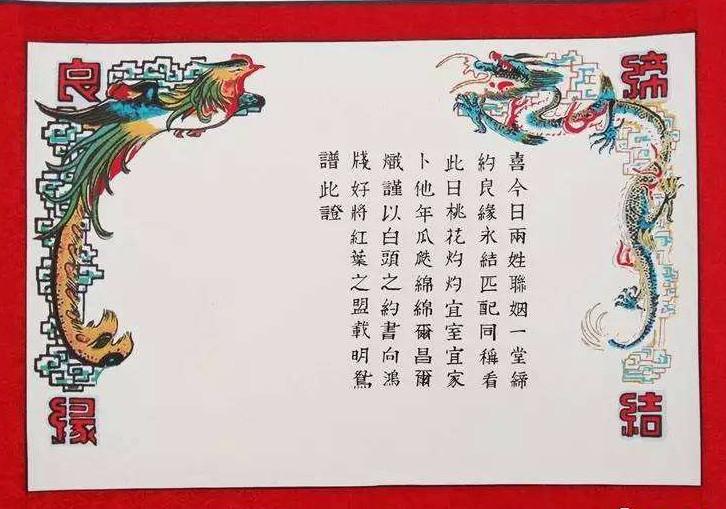 締結
喜今日兩姓聯姻一堂締
約良緣永結匹配同稱看
此日桃花灼灼宜室宜家
卜他年瓜瓞綿綿爾昌爾
熾謹以白頭之約書向鴻
牋好將紅葉之盟載明鴛
譜此證
良緣